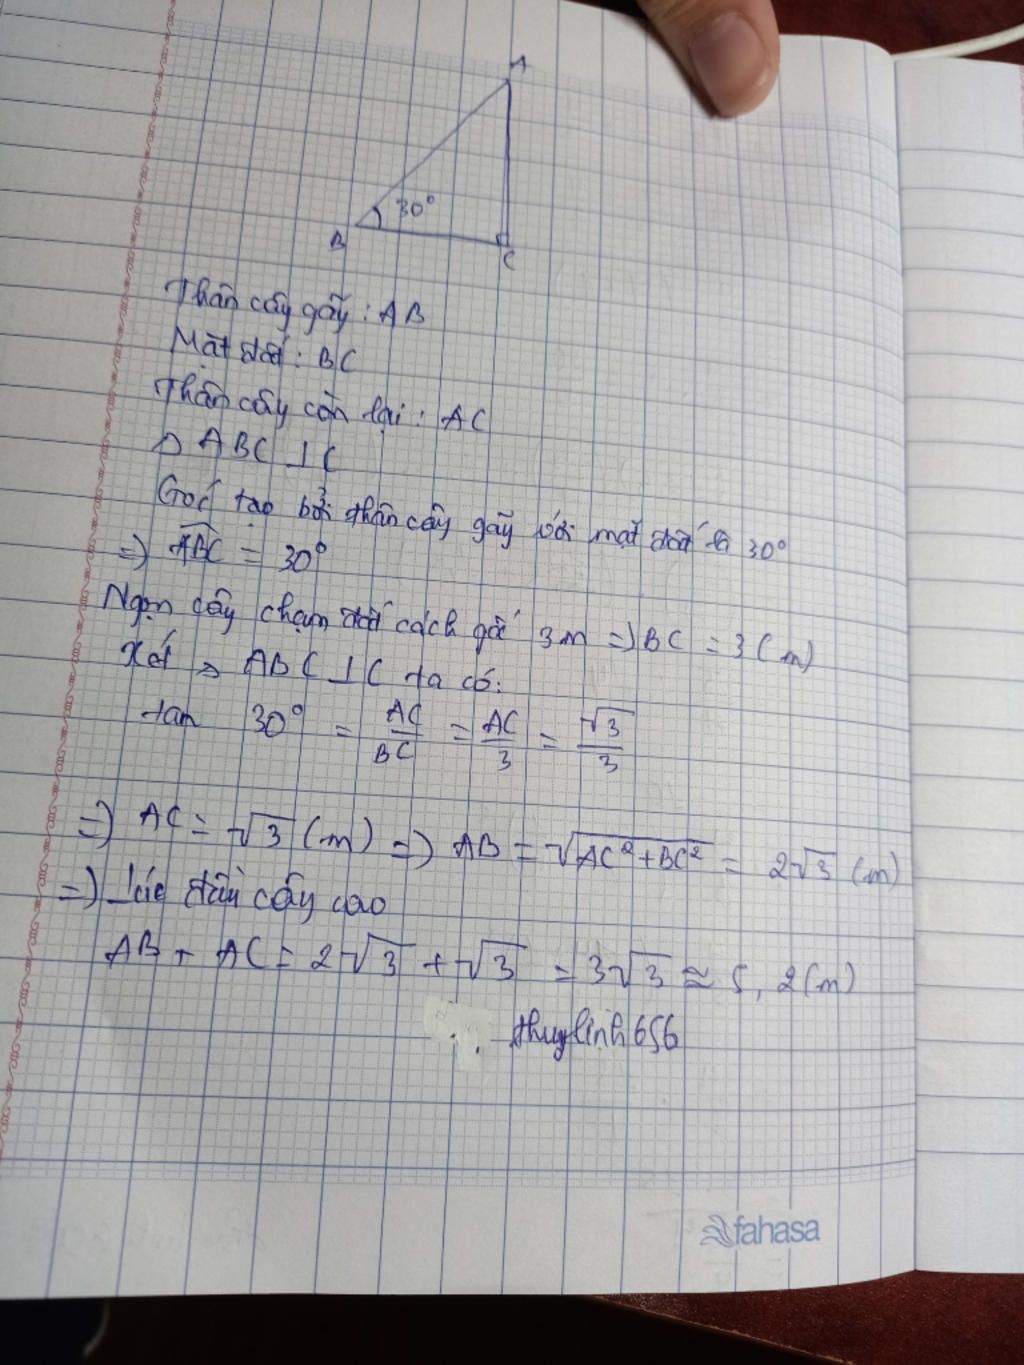 A
30°
B
C
Thân cây gãy : AB
Mặt đất : BC
Thân cây còn lại : AC
△ ABC ⊥ C
Góc tạo bởi thân cây gãy với mặt đất là 30°
=) ABC = 30°
Ngọn cây chạm đất cách gốc 3m =) BC = 3 (m)
Xét △ ABC ⊥ C ta có:
tan 30° = AC/BC = AC/3 = √3/3
=) AC = √3 (m) =) AB = √AC² + BC² = 2√3 (m)
=) Lúc đầu cây cao
AB + AC = 2√3 + √3 = 3√3 ≈ 5,2 (m)
thuylinh656
fahasa